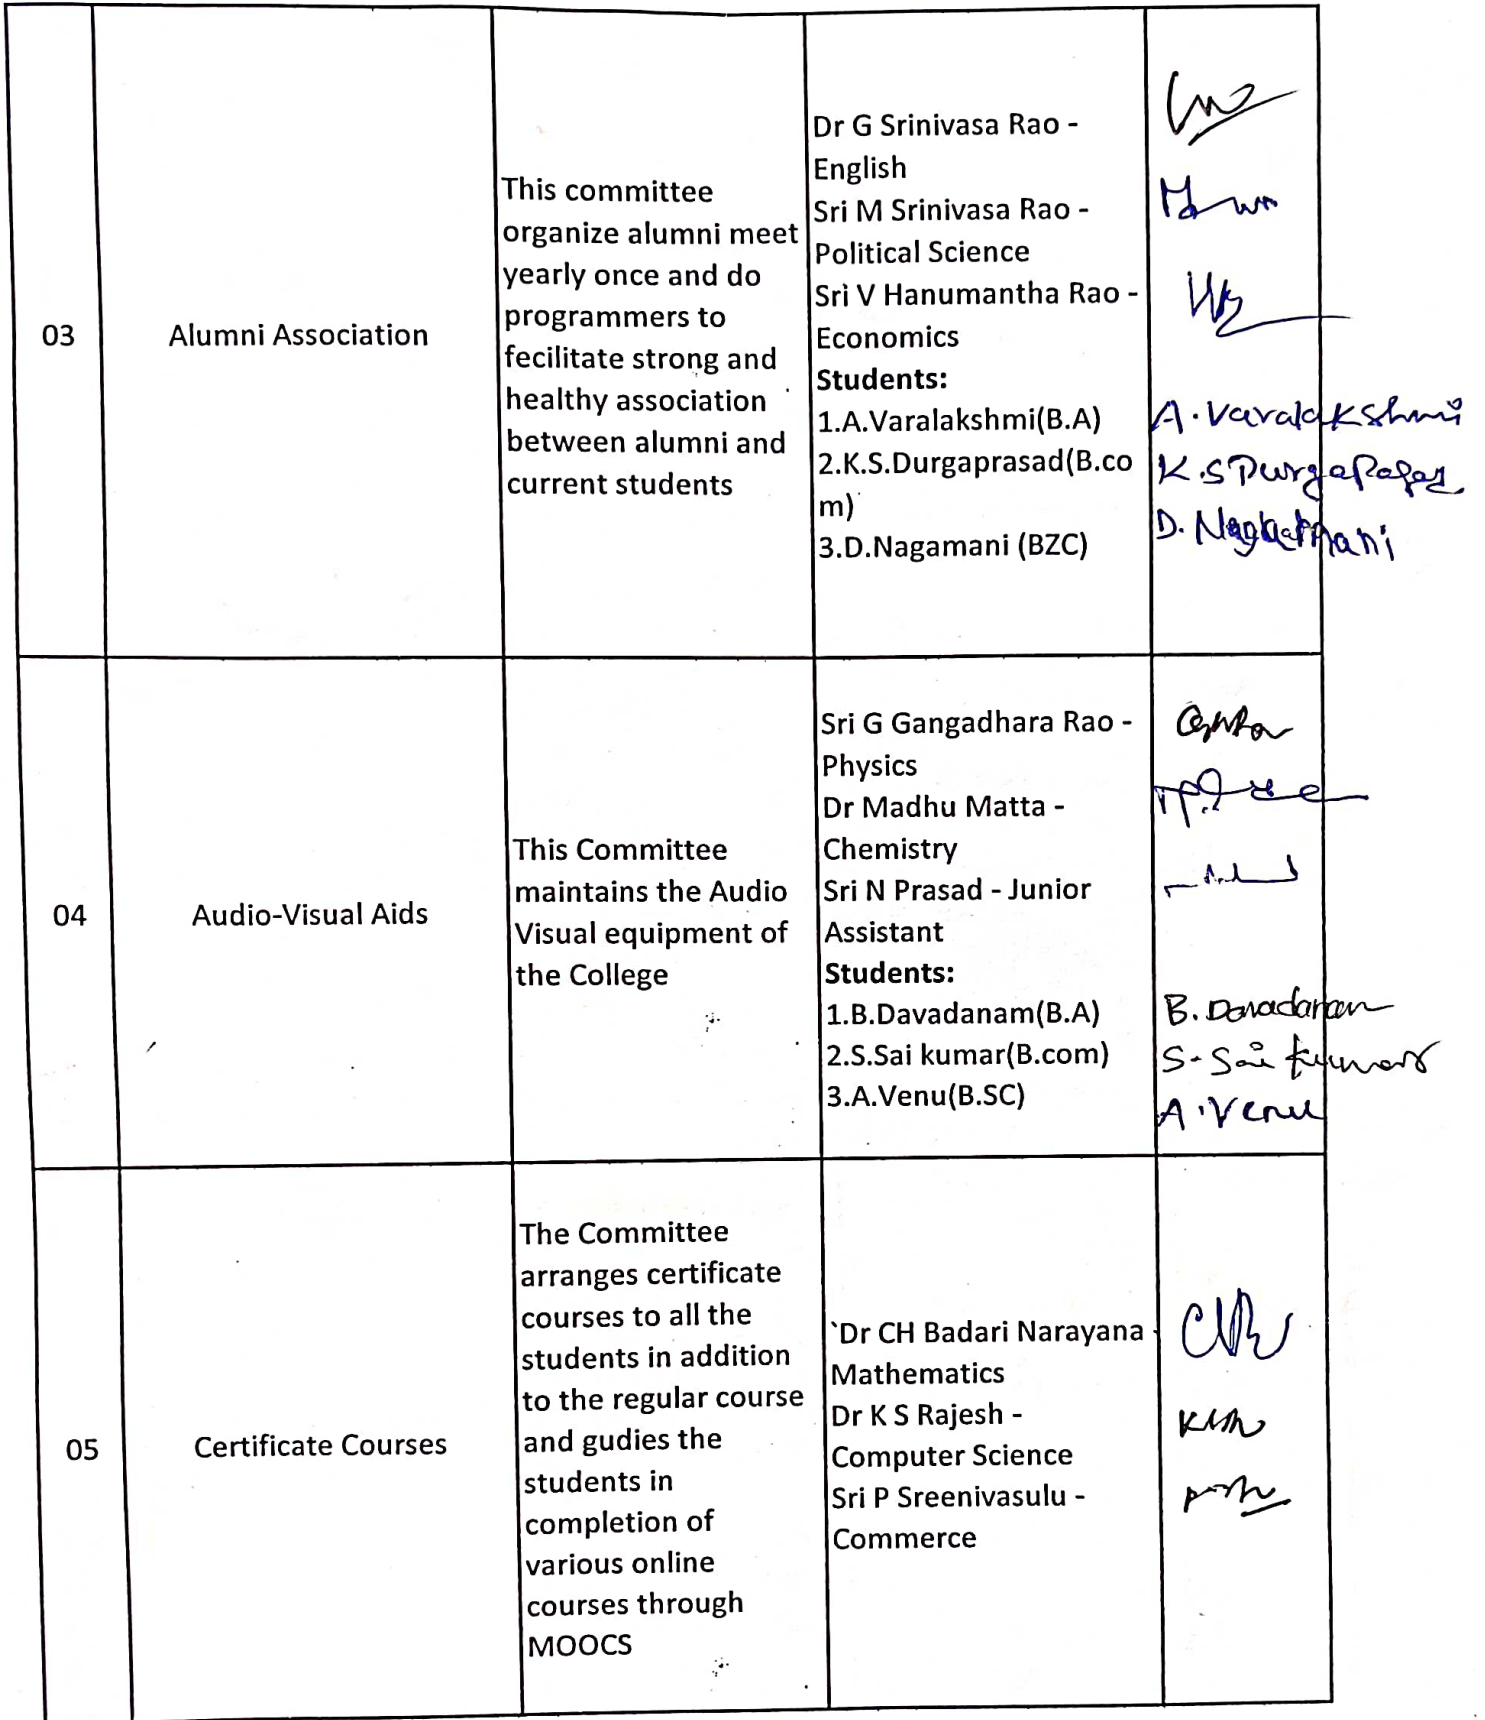 03
Alumni Association
This committee
organize alumni meet
yearly once and do
programmers to
fecilitate strong and
healthy association
between alumni and
current students
Dr G Srinivasa Rao -
English
Sri M Srinivasa Rao -
Political Science
Sri V Hanumantha Rao -
Economics
Students:
1.A.Varalakshmi(B.A)
2.K.S.Durgaprasad(B.co
m)
3.D.Nagamani (BZC)
A. Varalakshmi
K.S
D. Nagamani
04
Audio-Visual Aids
This Committee
maintains the Audio
Visual equipment of
the College
Sri G Gangadhara Rao -
Physics
Dr Madhu Matta -
Chemistry
Sri N Prasad - Junior
Assistant
Students:
1.B.Davadanam(B.A)
2.S.Sai kumar(B.com)
3.A.Venu(B.SC)
B. Davadanam
S. Sai kumar
A. Venu
05
Certificate Courses
The Committee
arranges certificate
courses to all the
students in addition
to the regular course
and gudies the
students in
completion of
various online
courses through
MOOCS
`Dr CH Badari Narayana -
Mathematics
Dr K S Rajesh -
Computer Science
Sri P Sreenivasulu -
Commerce